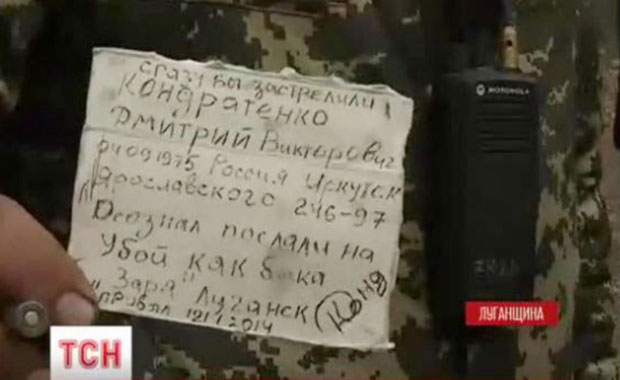 сразу бы застрелили
Кондратенко
Дмитрий Викторович
04091975 Россия Иркутск
Ярославского 246-97
Осознал послали на
убой как быка
"Заря" Луганск
Коля
2014
MOTOROLA
ЛУГАНЩИНА
ТСН